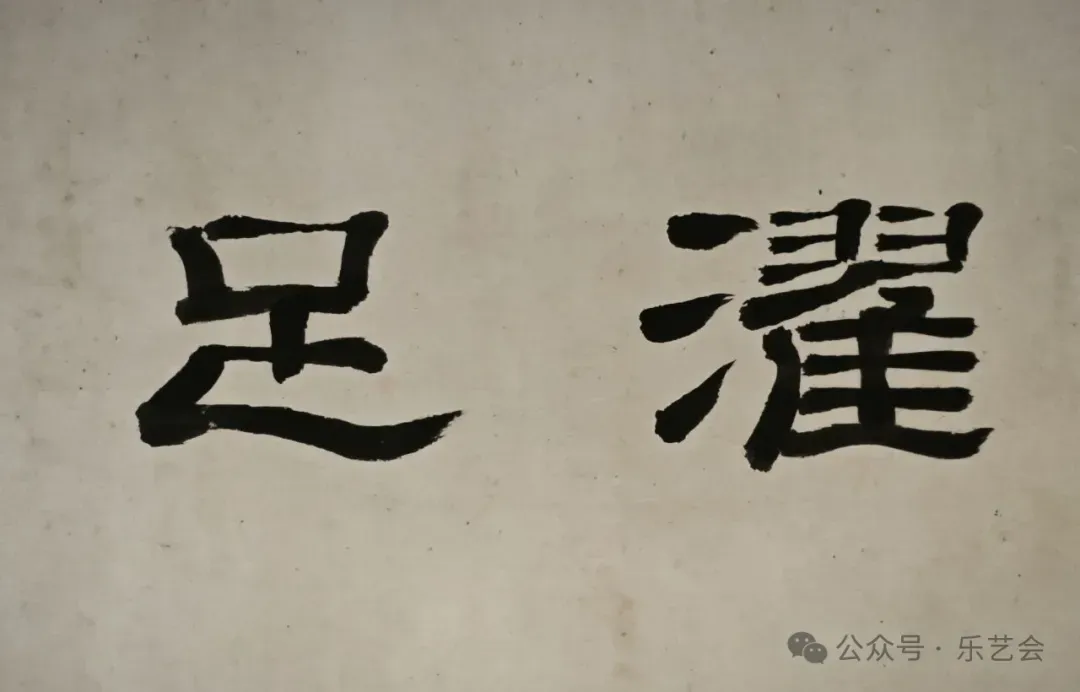 濯足
公众号·乐艺会